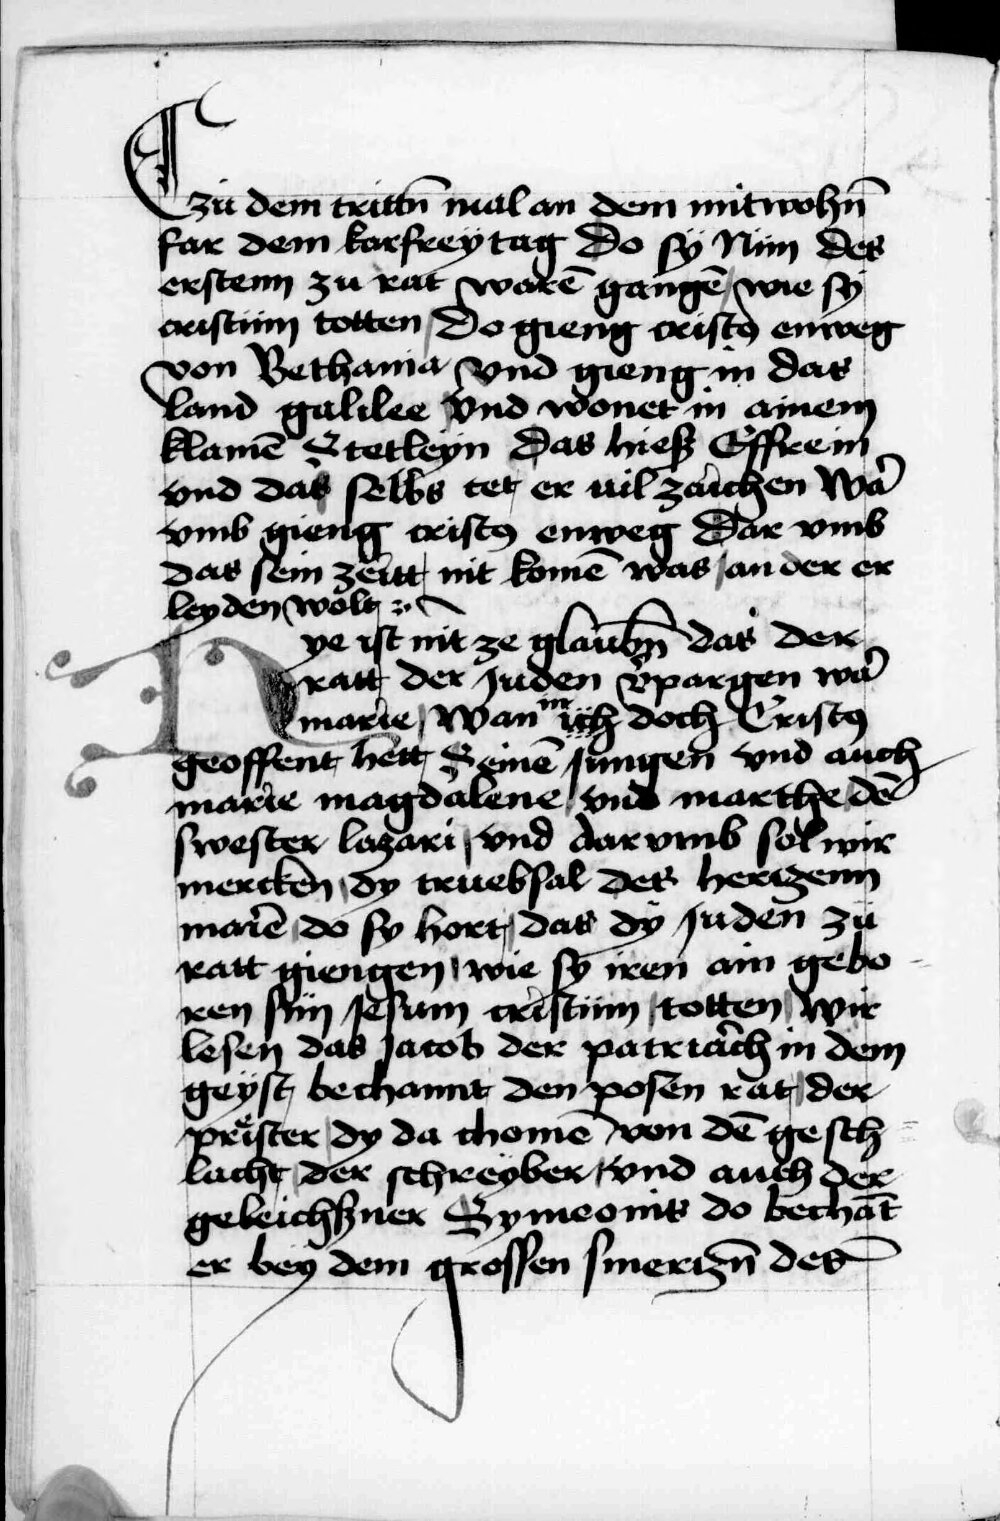 zü dem trittn̄ mal an dem mitwohn̄
far dem karfreÿtag Do sÿ Nün des
erstenn zu rat warē gangē / wie sÿ
cristüm totten / Do gieng cristꝰ enweg
von Bethania vnd gieng in das
land galilee vnd wonet in ainem
klainē Stetleyn Das hieß Effrein
vnd das selbs tet er uil zaichen War
vmb gieng cristꝰ enweg Dar vmb
das sein zeitt nit komē was / an der er
leyden wolt
Hye ist nit ze glaubn̄ das der
ratt der Juden v̓pargen war
marie / Wan in ich doch Cristꝰ
geoffent hett Seinē Jungen vnd auch
marie magdalene / vnd marthe / dē
swester lazari / vnd darvmb sol wir
mercken / dy truebsal des hertzenn
marie / do sy hort / das dÿ Juden zü
ratt giengen / wie sy iren ain gebo-
ren sün Jesum cristüm / totten / Wir
lesen das Jacob der patriarch in dem
geÿst bechannt den posen rat / der
prister / dy da chomē von dē gesch=
lacht der schreyber / vnd auch der
geleichßner Symeonis do bechāt
er beÿ dem grossen smertzn̄ des